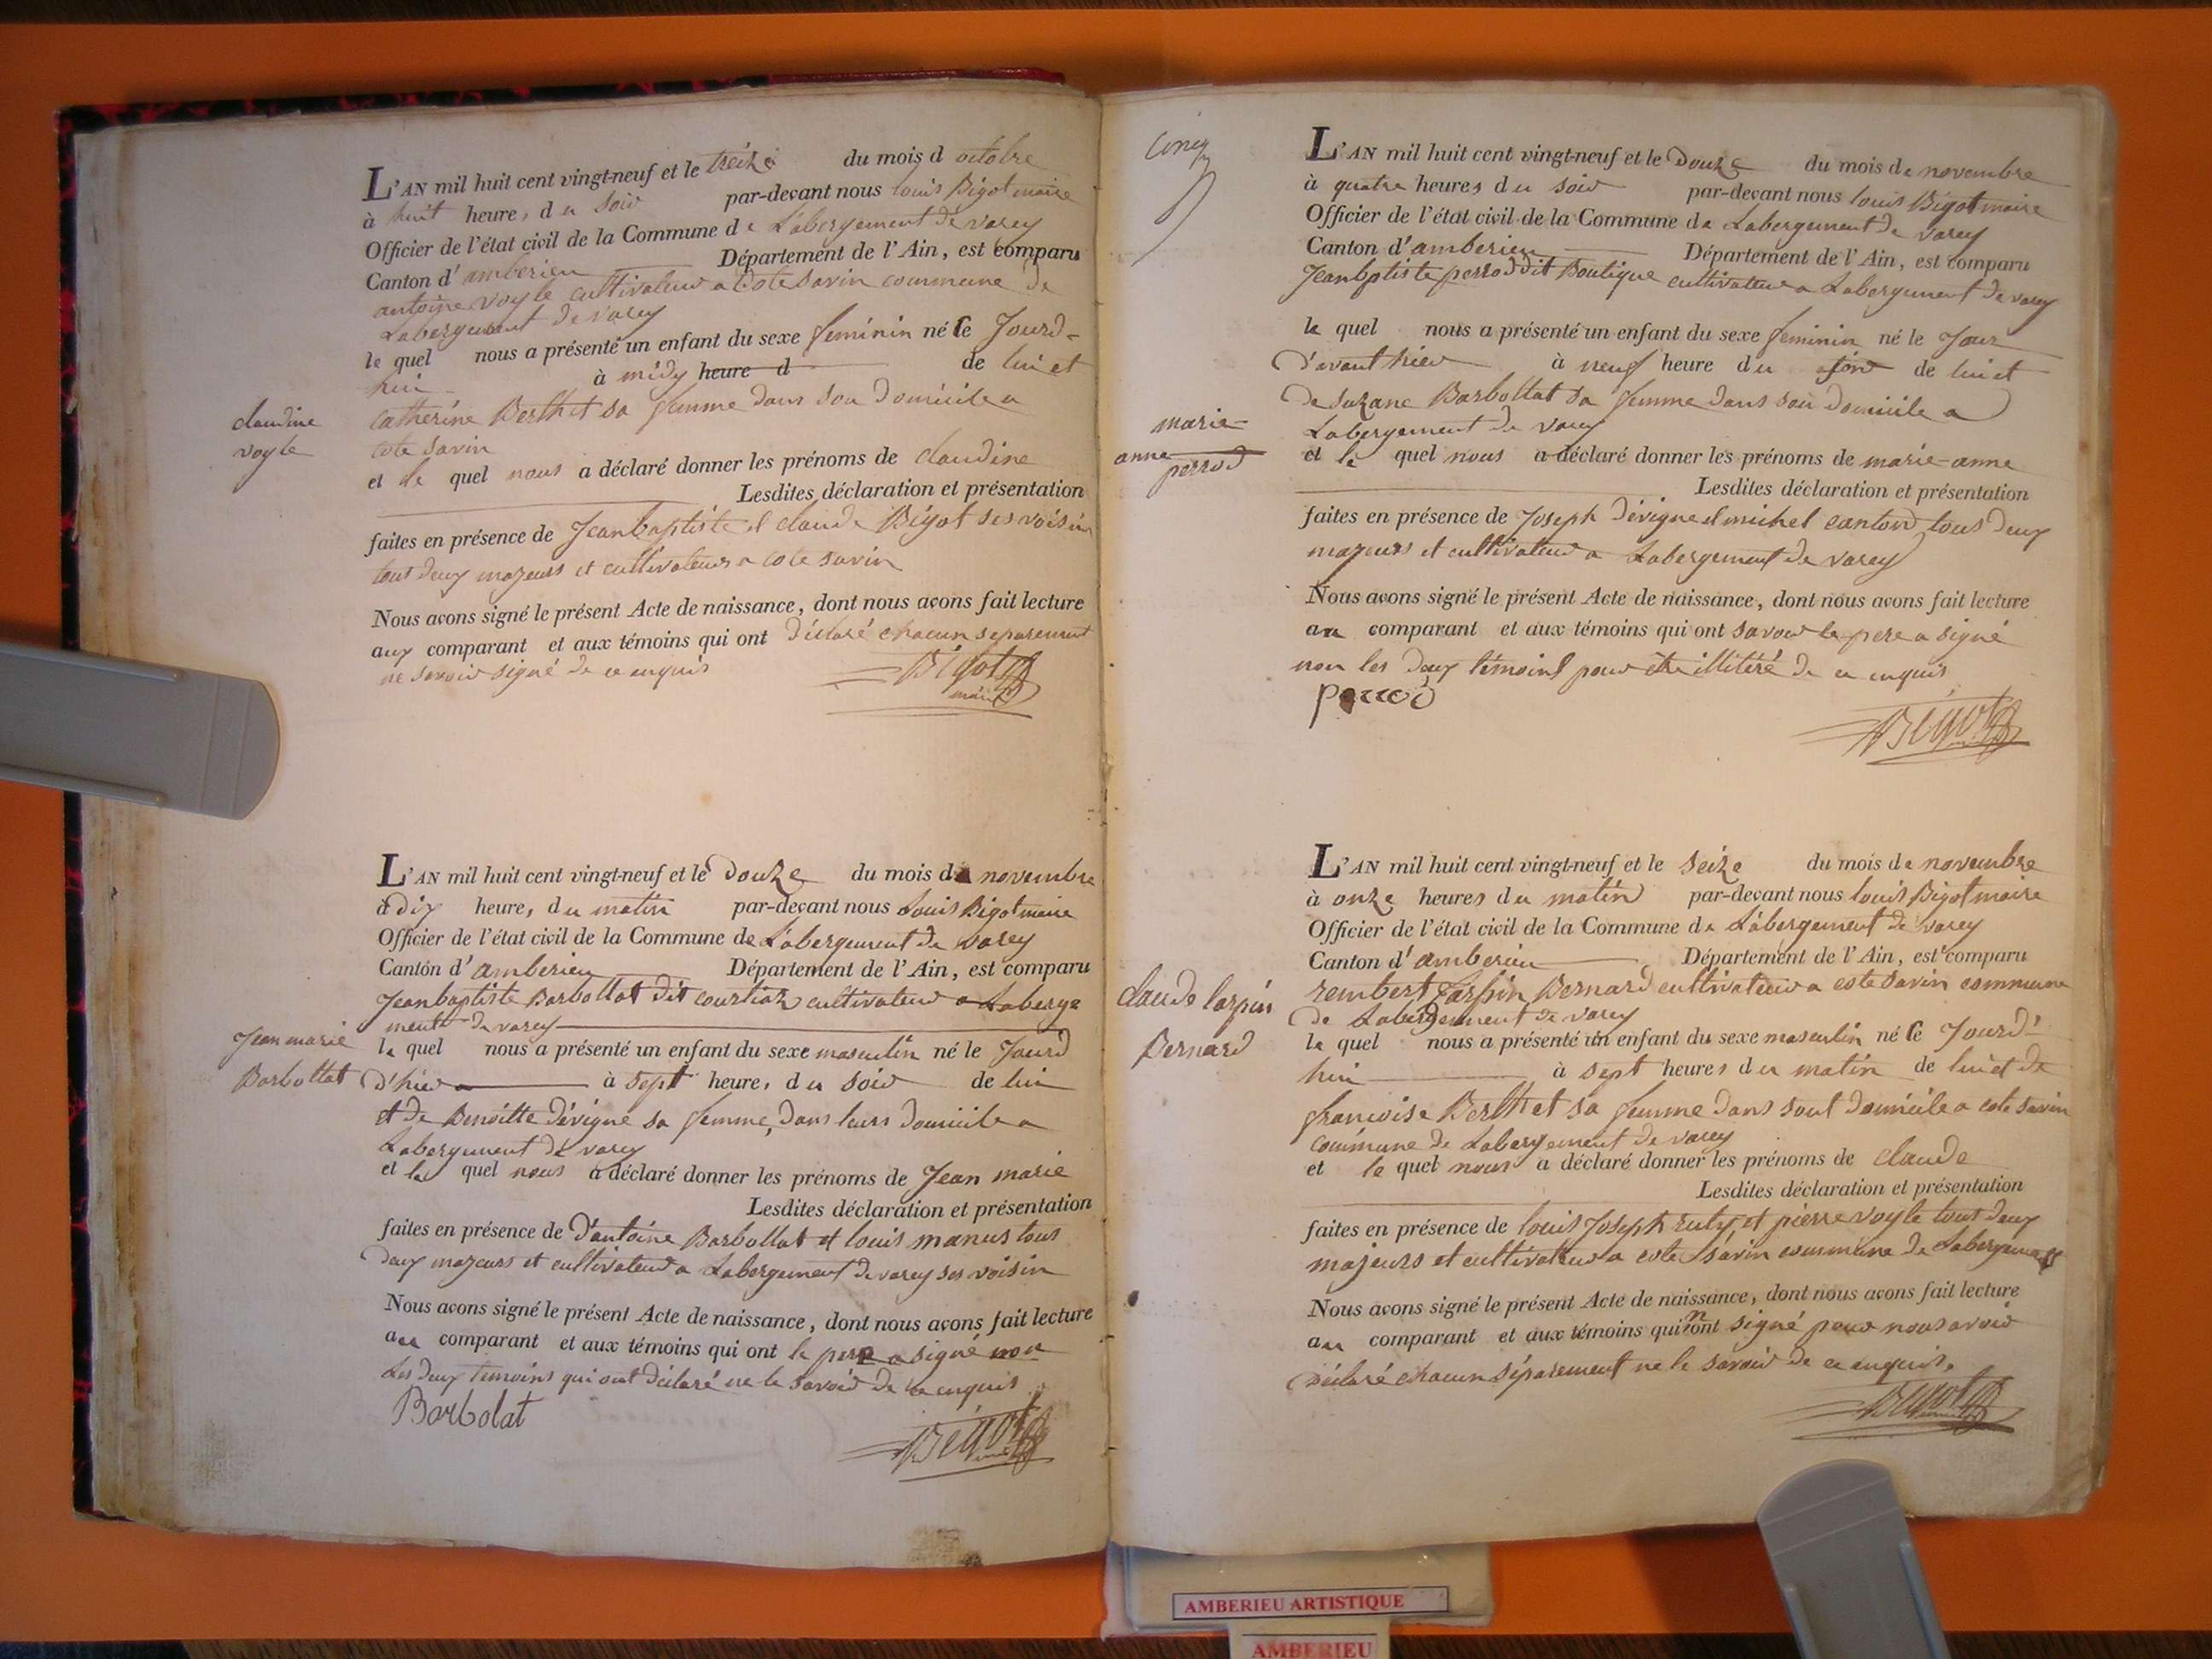 L'AN mil huit cent vingt-neuf et le treize du mois d octobre
à huit heures du soir par-devant nous louis Bigot maire
Officier de l'état civil de la Commune de Labergement de varey
Canton d'amberieu Département de l'Ain, est comparu
antoine voyle cultivateur a Cote savin commune de
Labergement de varey
le quel nous a présenté un enfant du sexe feminin né le Jourd-
hui à midy heure d de lui et
claudine
voyle
catherine Berthet sa femme dans son domicile a
cote savin
et le quel nous a déclaré donner les prénoms de claudine
Lesdites déclaration et présentation
faites en présence de Jean baptiste et claude Bigot ses voisin
tout deux majeurs et cultivateurs a cote savin
Nous avons signé le présent Acte de naissance, dont nous avons fait lecture
aux comparant et aux témoins qui ont déclaré chacun séparement
ne savoir signé de ce enquis
Bigot
maire
L'AN mil huit cent vingt-neuf et le douze du mois de novembre
à dix heures du matin par-devant nous Louis Bigot maire
Officier de l'état civil de la Commune de Labergement de varey
Canton d'amberieu Département de l'Ain, est comparu
Jean baptiste Barbollat dit courtiaz cultivateur a Laberge
ment de varey
Jean marie
Barbollat
le quel nous a présenté un enfant du sexe masculin né le Jourd
d'hier à sept heures du soir de lui
et de Benoitte dévigne sa femme, dans leurs domicile a
Labergement de varey
et le quel nous a déclaré donner les prénoms de Jean marie
Lesdites déclaration et présentation
faites en présence de D'antoine Barbollat et louis manus tous
deux majeurs et cultivateur a Labergement de varey ses voisin
Nous avons signé le présent Acte de naissance, dont nous avons fait lecture
au comparant et aux témoins qui ont le pere a signé non
Les deux temoins qui ont déclaré ne le savoir de ce enquis
Barbolat
Bigot
cinq
L'AN mil huit cent vingt-neuf et le Douze du mois de novembre
à quatre heures du soir par-devant nous louis Bigot maire
Officier de l'état civil de la Commune de Labergement de varey
Canton d'amberieu Département de l'Ain, est comparu
Jean bptiste perrod dit Boutique cultivateur a Labergement de varey
le quel nous a présenté un enfant du sexe feminin né le Jour
d'avant hier à neuf heure du soir de lui et
de suzane Barbollat sa femme dans son domicile a
Labergement de varey
marie-
anne
perrod
et le quel nous a déclaré donner les prénoms de marie-anne
Lesdites déclaration et présentation
faites en présence de Joseph dévigne et michel cantor tous deux
majeurs et cultivateur a Labergement de varey
Nous avons signé le présent Acte de naissance, dont nous avons fait lecture
au comparant et aux témoins qui ont savoir le pere a signé
non les deux témoins pour être illitéré de ce enquis
perrod
Bigot
L'AN mil huit cent vingt-neuf et le seize du mois de novembre
à onze heures du matin par-devant nous louis Bigot maire
Officier de l'état civil de la Commune de Labergement de varey
Canton d'amberieu Département de l'Ain, est comparu
rembert Larpin Bernard cultivateur a cote savin commune
de Labergement de varey
claude larpin
Bernard
le quel nous a présenté un enfant du sexe masculin né le Jourd'
hui à sept heures du matin de lui et de
francoise Berthet sa femme dans sout domicile a cote savin
commune de Labergement de varey
et le quel nous a déclaré donner les prénoms de claude
Lesdites déclaration et présentation
faites en présence de louis Joseph ruty et pierre voyle tout deux
majeurs et cultivateur a cote savin commune de Labergement
Nous avons signé le présent Acte de naissance, dont nous avons fait lecture
au comparant et aux témoins qui n'ont signé pour nous avoir
déclaré chacun séparement ne le savoir de ce enquis.
Bigot
AMBERIEU ARTISTIQUE
AMBERIEU